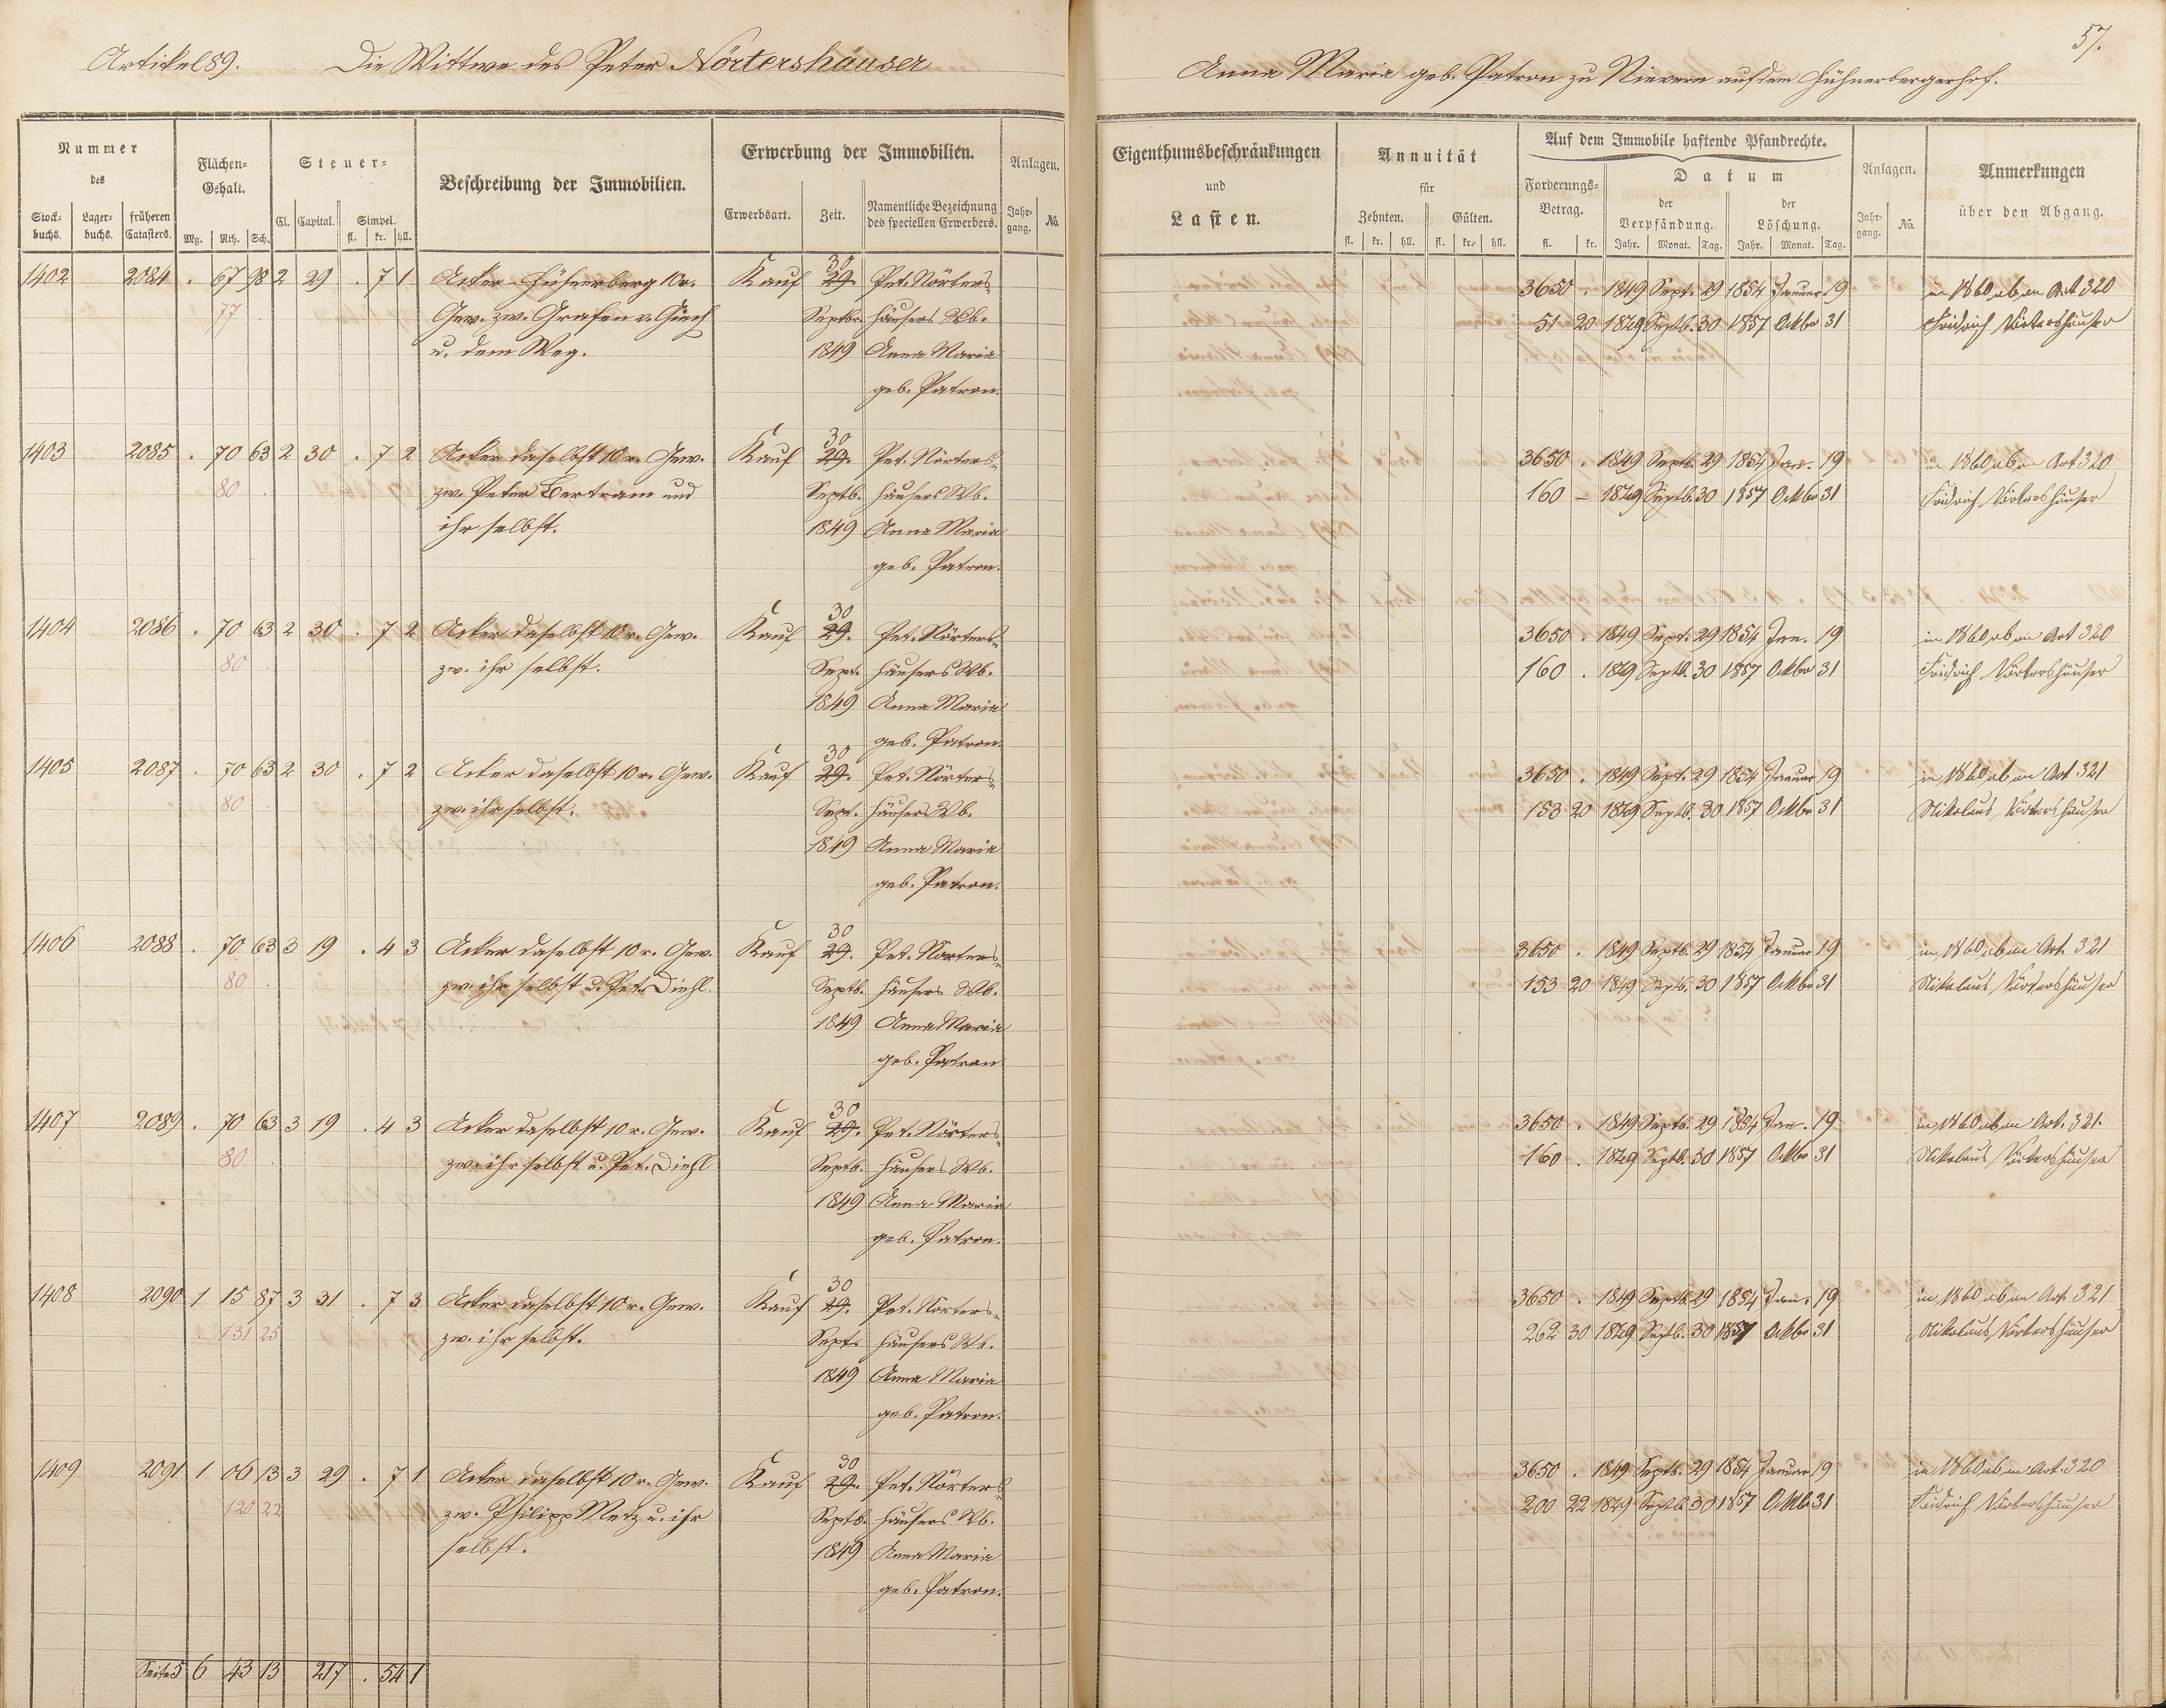 Artikel 89. Die Wittwe des Peter Nörtershäuser
57.
Anna Maria geb. Patron zu Nievern auf dem Hühnerbergerhof.
Nummer des
Stock-buchs. Lager-buchs. früheren Catasters.
Flächen-Gehalt.
Mg. Rth. Sch.
Steuer-
Cl. Capital. Simpel.
fl. kr. hll.
Beschreibung der Immobilien.
Erwerbung der Immobilien.
Erwerbsart. Zeit. Namentliche Bezeichnung des speciellen Erwerbers.
Anlagen.
Jahr-gang. No.
Eigenthumsbeschränkungen
und
Lasten.
Annuität
für
Zehnten. Gülten.
fl. kr. hll. fl. kr. hll.
Auf dem Immobile haftende Pfandrechte.
Forderungs-Betrag.
fl. kr.
Datum
der Verpfändung. der Löschung.
Jahr. Monat. Tag. Jahr. Monat. Tag.
Anlagen.
Jahr-gang. No.
Anmerkungen
über den Abgang.
30
1402 2084 . 67 98 2 29 . 7 1 Acker Hühnerberg 10r. Kauf 29. Pet. Nörters-
77 Gew. zw. Grafen v. Giech Septbr. häusers Wb.
u. dem Weg. 1849 Anna Maria
geb. Patron.
3650 . 1849 Sept. 29 1854 Januar 19 in 1860 ab an Art 320
51 20 1849 Septb. 30 1857 Octbr 31 Friedrich Nörtershäuser
30
1403 2085 . 70 63 2 30 . 7 2 Acker daselbst 10 r. Gew. Kauf 29. Pet. Nörters-
80 zw. Peter Bertram und Septb. häusers Wb.
ihr selbst. 1849 Anna Maria
geb. Patron.
3650 . 1849 Septb. 29 1854 Jan. 19 in 1860 ab an Art 320
160 – 1849 Septb. 30 1857 Octbr 31 Friedrich Nörtershäuser
30
1404 2086 . 70 63 2 30 . 7 2 Acker daselbst 10 r. Gew. Kauf 29. Pet. Nörters-
80 zw. ihr selbst. Sept. häusers Wb.
1849 Anna Maria
geb. Patron.
3650 . 1849 Sept. 29 1854 Jan. 19 in 1860 ab an Art 320
160 . 1849 Septb. 30 1857 Octbr 31 Friedrich Nörtershäuser
30
1405 2087 . 70 63 2 30 . 7 2 Acker daselbst 10 r. Gew. Kauf 29. Pet. Nörters-
80 zw. ihr selbst. Sept. häusers Wb.
1849 Anna Maria
geb. Patron.
3650 . 1849 Sept. 29 1854 Januar 19 in 1860 ab an Art 321
153 20 1849 Septb. 30 1857 Octbr 31 Nikolaus Nörtershäuser
30
1406 2088 . 70 63 3 19 . 4 3 Acker daselbst 10 r. Gew. Kauf 29. Pet. Nörters-
80 zw. ihr selbst u. Pet. Diehl. Septb. häusers Wb.
1849 Anna Maria
geb. Patron
3650 . 1849 Septb. 29 1854 Januar 19 in 1860 ab an Art. 321
153 20 1849 Septb. 30 1857 Octbr 31 Nikolaus Nörtershäuser
30
1407 2089 . 70 63 3 19 . 4 3 Acker daselbst 10 r. Gew. Kauf 29. Pet. Nörters-
80 zw. ihr selbst u. Pet. Diehl Septb. häusers Wb.
1849 Anna Maria
geb. Patron.
3650 . 1849 Septb. 29 1854 Jan. 19 in 1860 ab an Art. 321.
160 . 1849 Septb. 30 1857 Octbr 31 Nikolaus Nörtershäuser
30
1408 2090 1 15 87 3 31 . 7 3 Acker daselbst 10 r. Gew. Kauf 29. Pet. Nörters-
131 25 zw. ihr selbst. Sept. häusers Wb.
1849 Anna Maria
geb. Patron.
3650 . 1849 Septb. 29 1854 Jan. 19 in 1860 ab an Art. 321
262 30 1849 Septb. 30 1857 Octbr 31 Nikolaus Nörtershäuser
30
1409 2091 1 06 13 3 29 . 7 1 Acker daselbst 10 r. Gew. Kauf 29. Pet. Nörters-
120 22 zw. Philipp Metz u. ihr Septb. häusers Wb.
selbst. 1849 Anna Maria
geb. Patron.
3650 . 1849 Septb. 29 1854 Januar 19 in 1860 ab an Art. 320
200 22 1849 Septb. 30 1857 Octbr 31 Friedrich Nörtershäuser
Seite 5 6 43 13 217 . 54 1